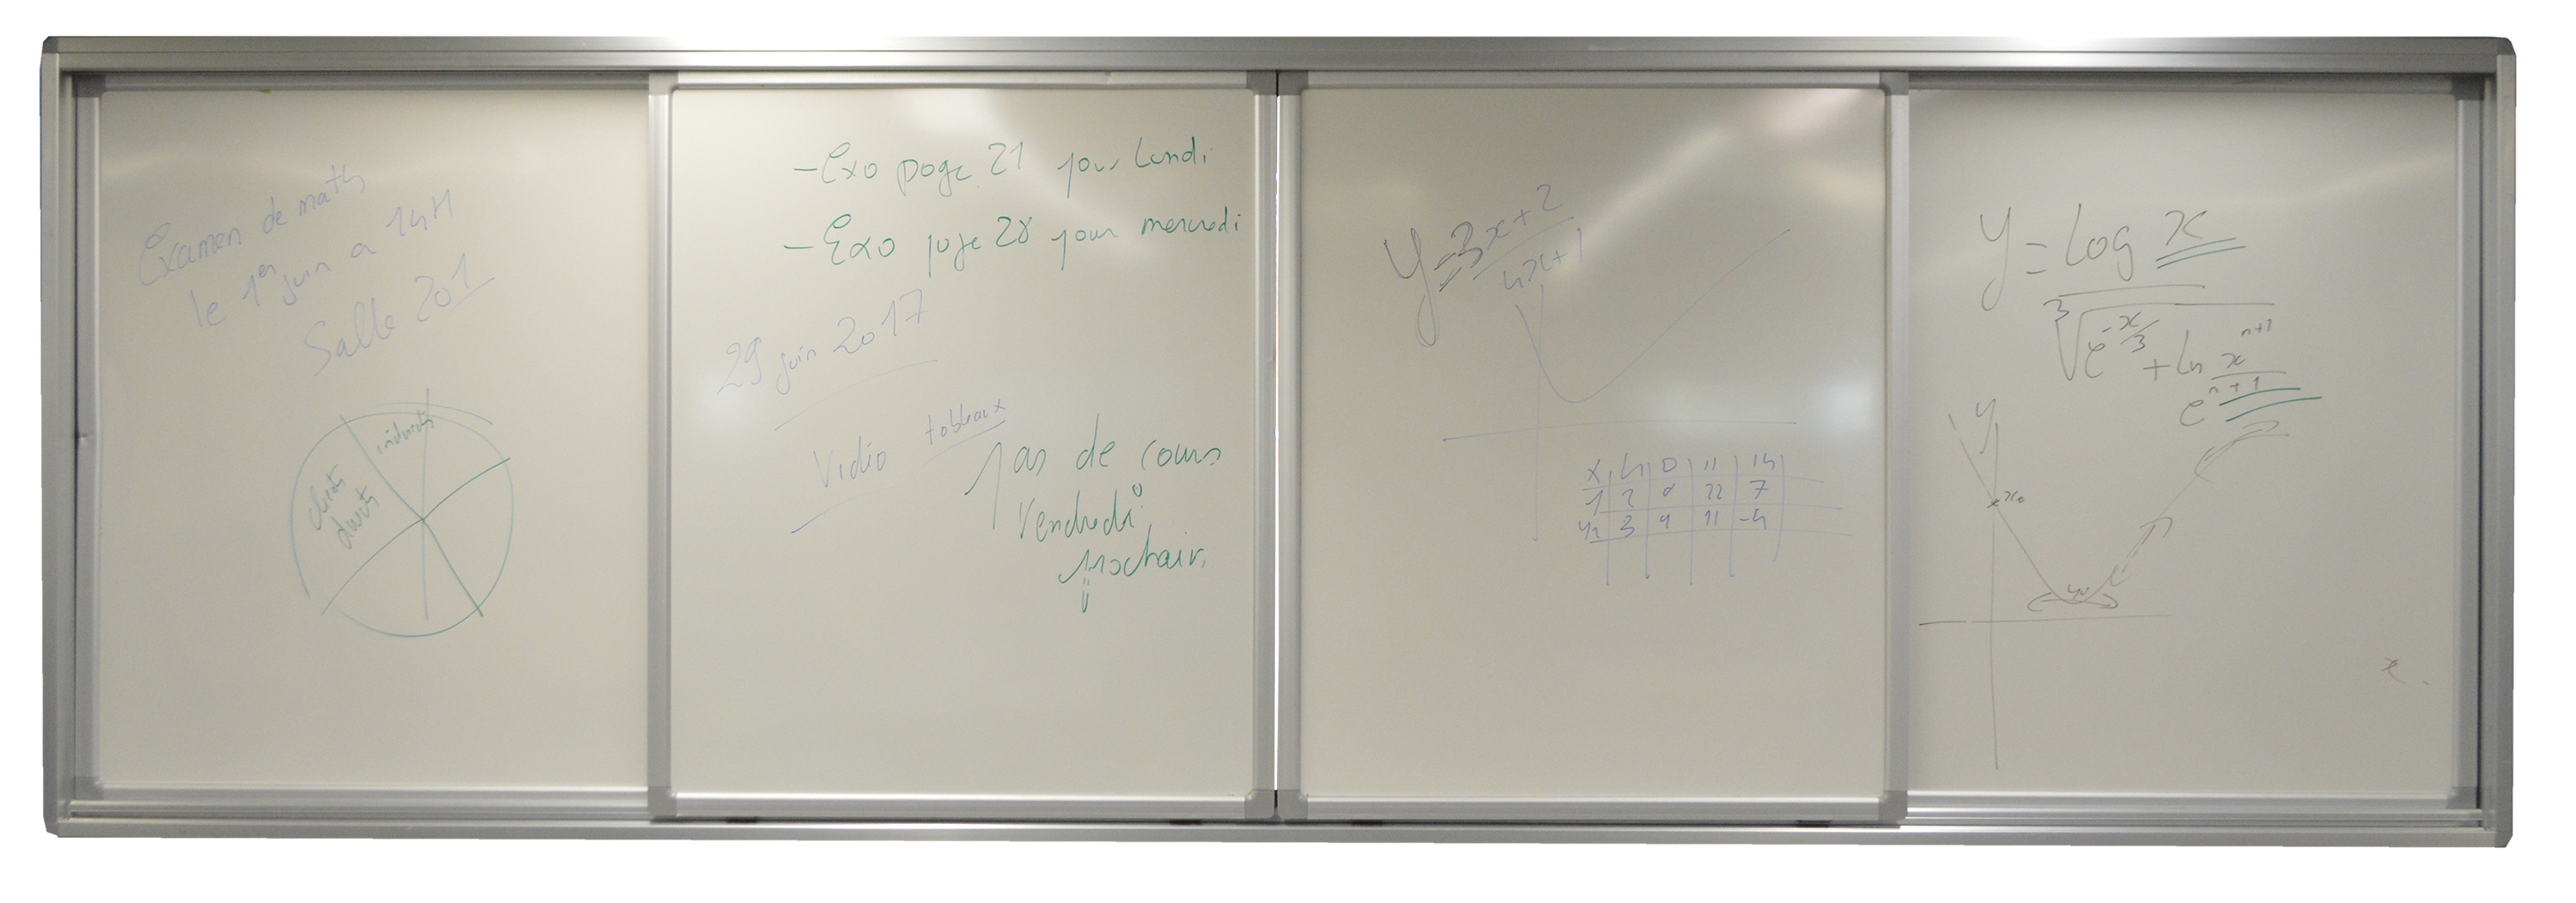 Examen de maths
le 1er juin a 14H
Salle 201
indirects
clients
directs
-Exo page 21 pour Lundi
-Exo page 28 pour mercredi
29 juin 2017
Vidéo tableaux
Pas de cours
Vendredi
prochain
y=3x+2
4x+1
x 4 0 11 14
2 22 7
3 11 -4
y=log x
3√
e^-x/3 + ln x^n+1
e^n+1
y
x0
x